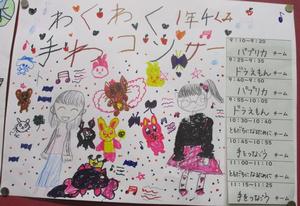 わくわく 1年4くみ
手わコンサー
9:10~9:20
パプリカ チーム
9:25~9:35
ドラえもん チーム
9:40~9:50
パプリカ チーム
9:55~10:05
ドラえもん チーム
10:30~10:40
ともだちになるために チーム
10:45~10:55
手をつなごう チーム
11:00~11:10
ともだちになるために チーム
11:15~11:25
手をつなごう チーム